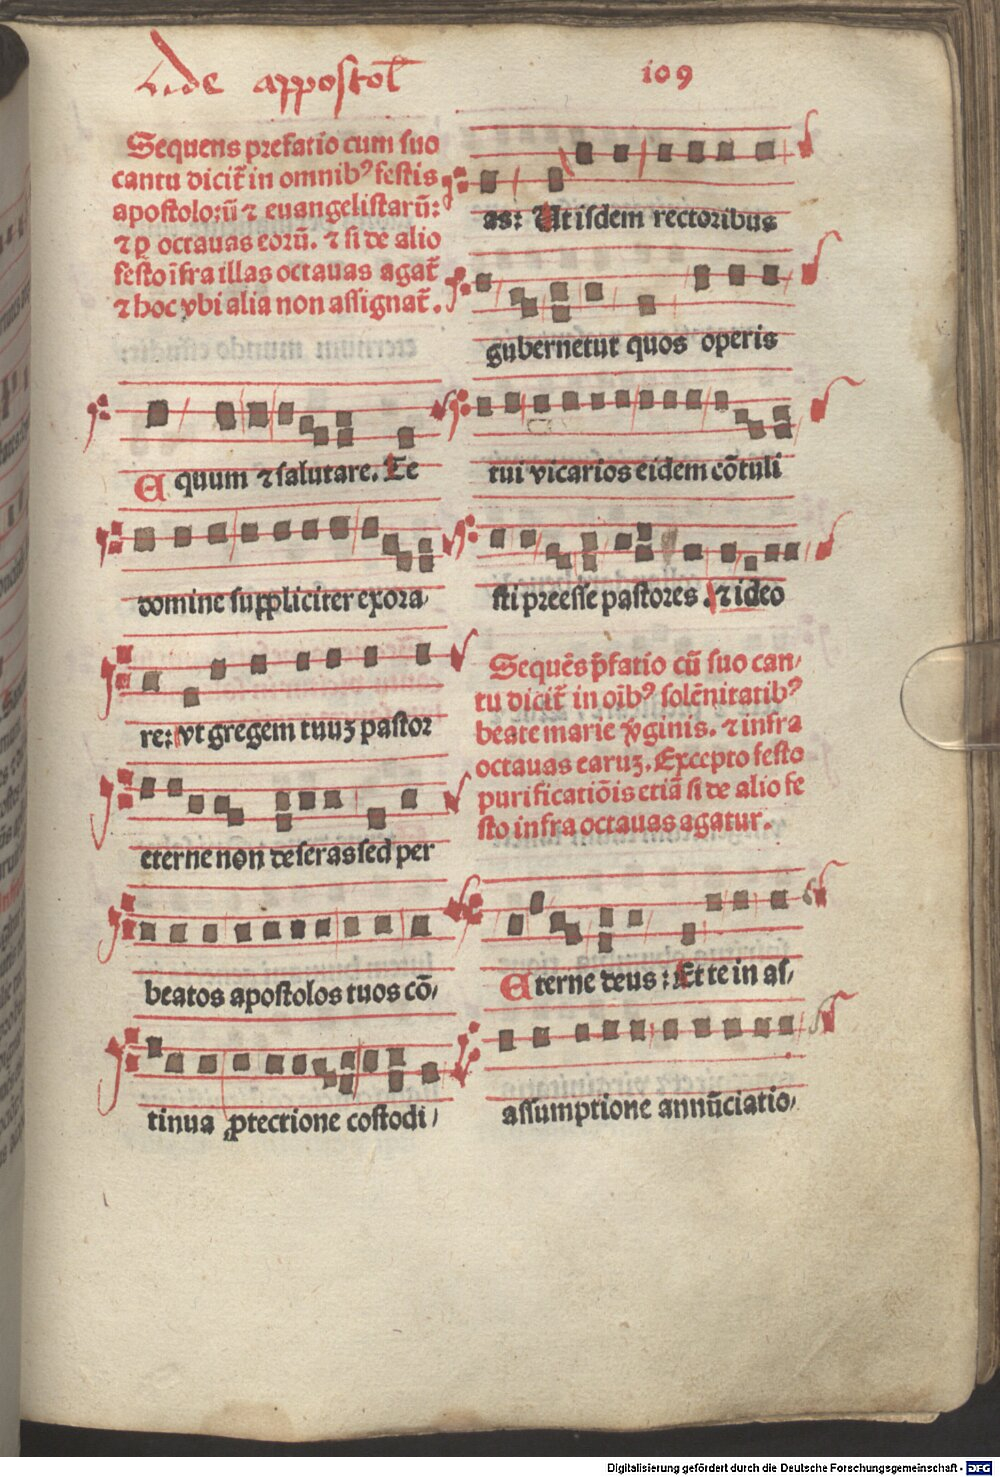 de appostol̄
109
Sequens prefatio cum suo
cantu dicit̄ in omnibꝰ festis
apostoloꝝ ⁊ euangelistarū:
⁊ ꝑ octauas eorū. ⁊ si de alio
festo īfra illas octauas agat̄
⁊ hoc vbi alia non assignat̄.
Equum ⁊ salutare. Te
domine suppliciter exora/
re: vt gregem tuuꝫ pastor
eterne non deseras sed per
beatos apostolos tuos cō/
tinua ꝓtectione costodi/
as: Ut isdem rectoribus
gubernetur quos operis
tui vicarios eidem cōtuli
sti preesse pastores. ⁊ ideo
Sequēs p̄fatio cū suo can/
tu dicit̄ in oībꝰ solēnitatibꝰ
beate marie v̓ginis. ⁊ infra
octauas earuꝫ. Excepto festo
purificatiōis etiā si de alio fe
sto infra octauas agatur.
Eterne deus: Et te in as/
assumptione annūciatio/
Digitalisierung gefördert durch die Deutsche Forschungsgemeinschaft - DFG